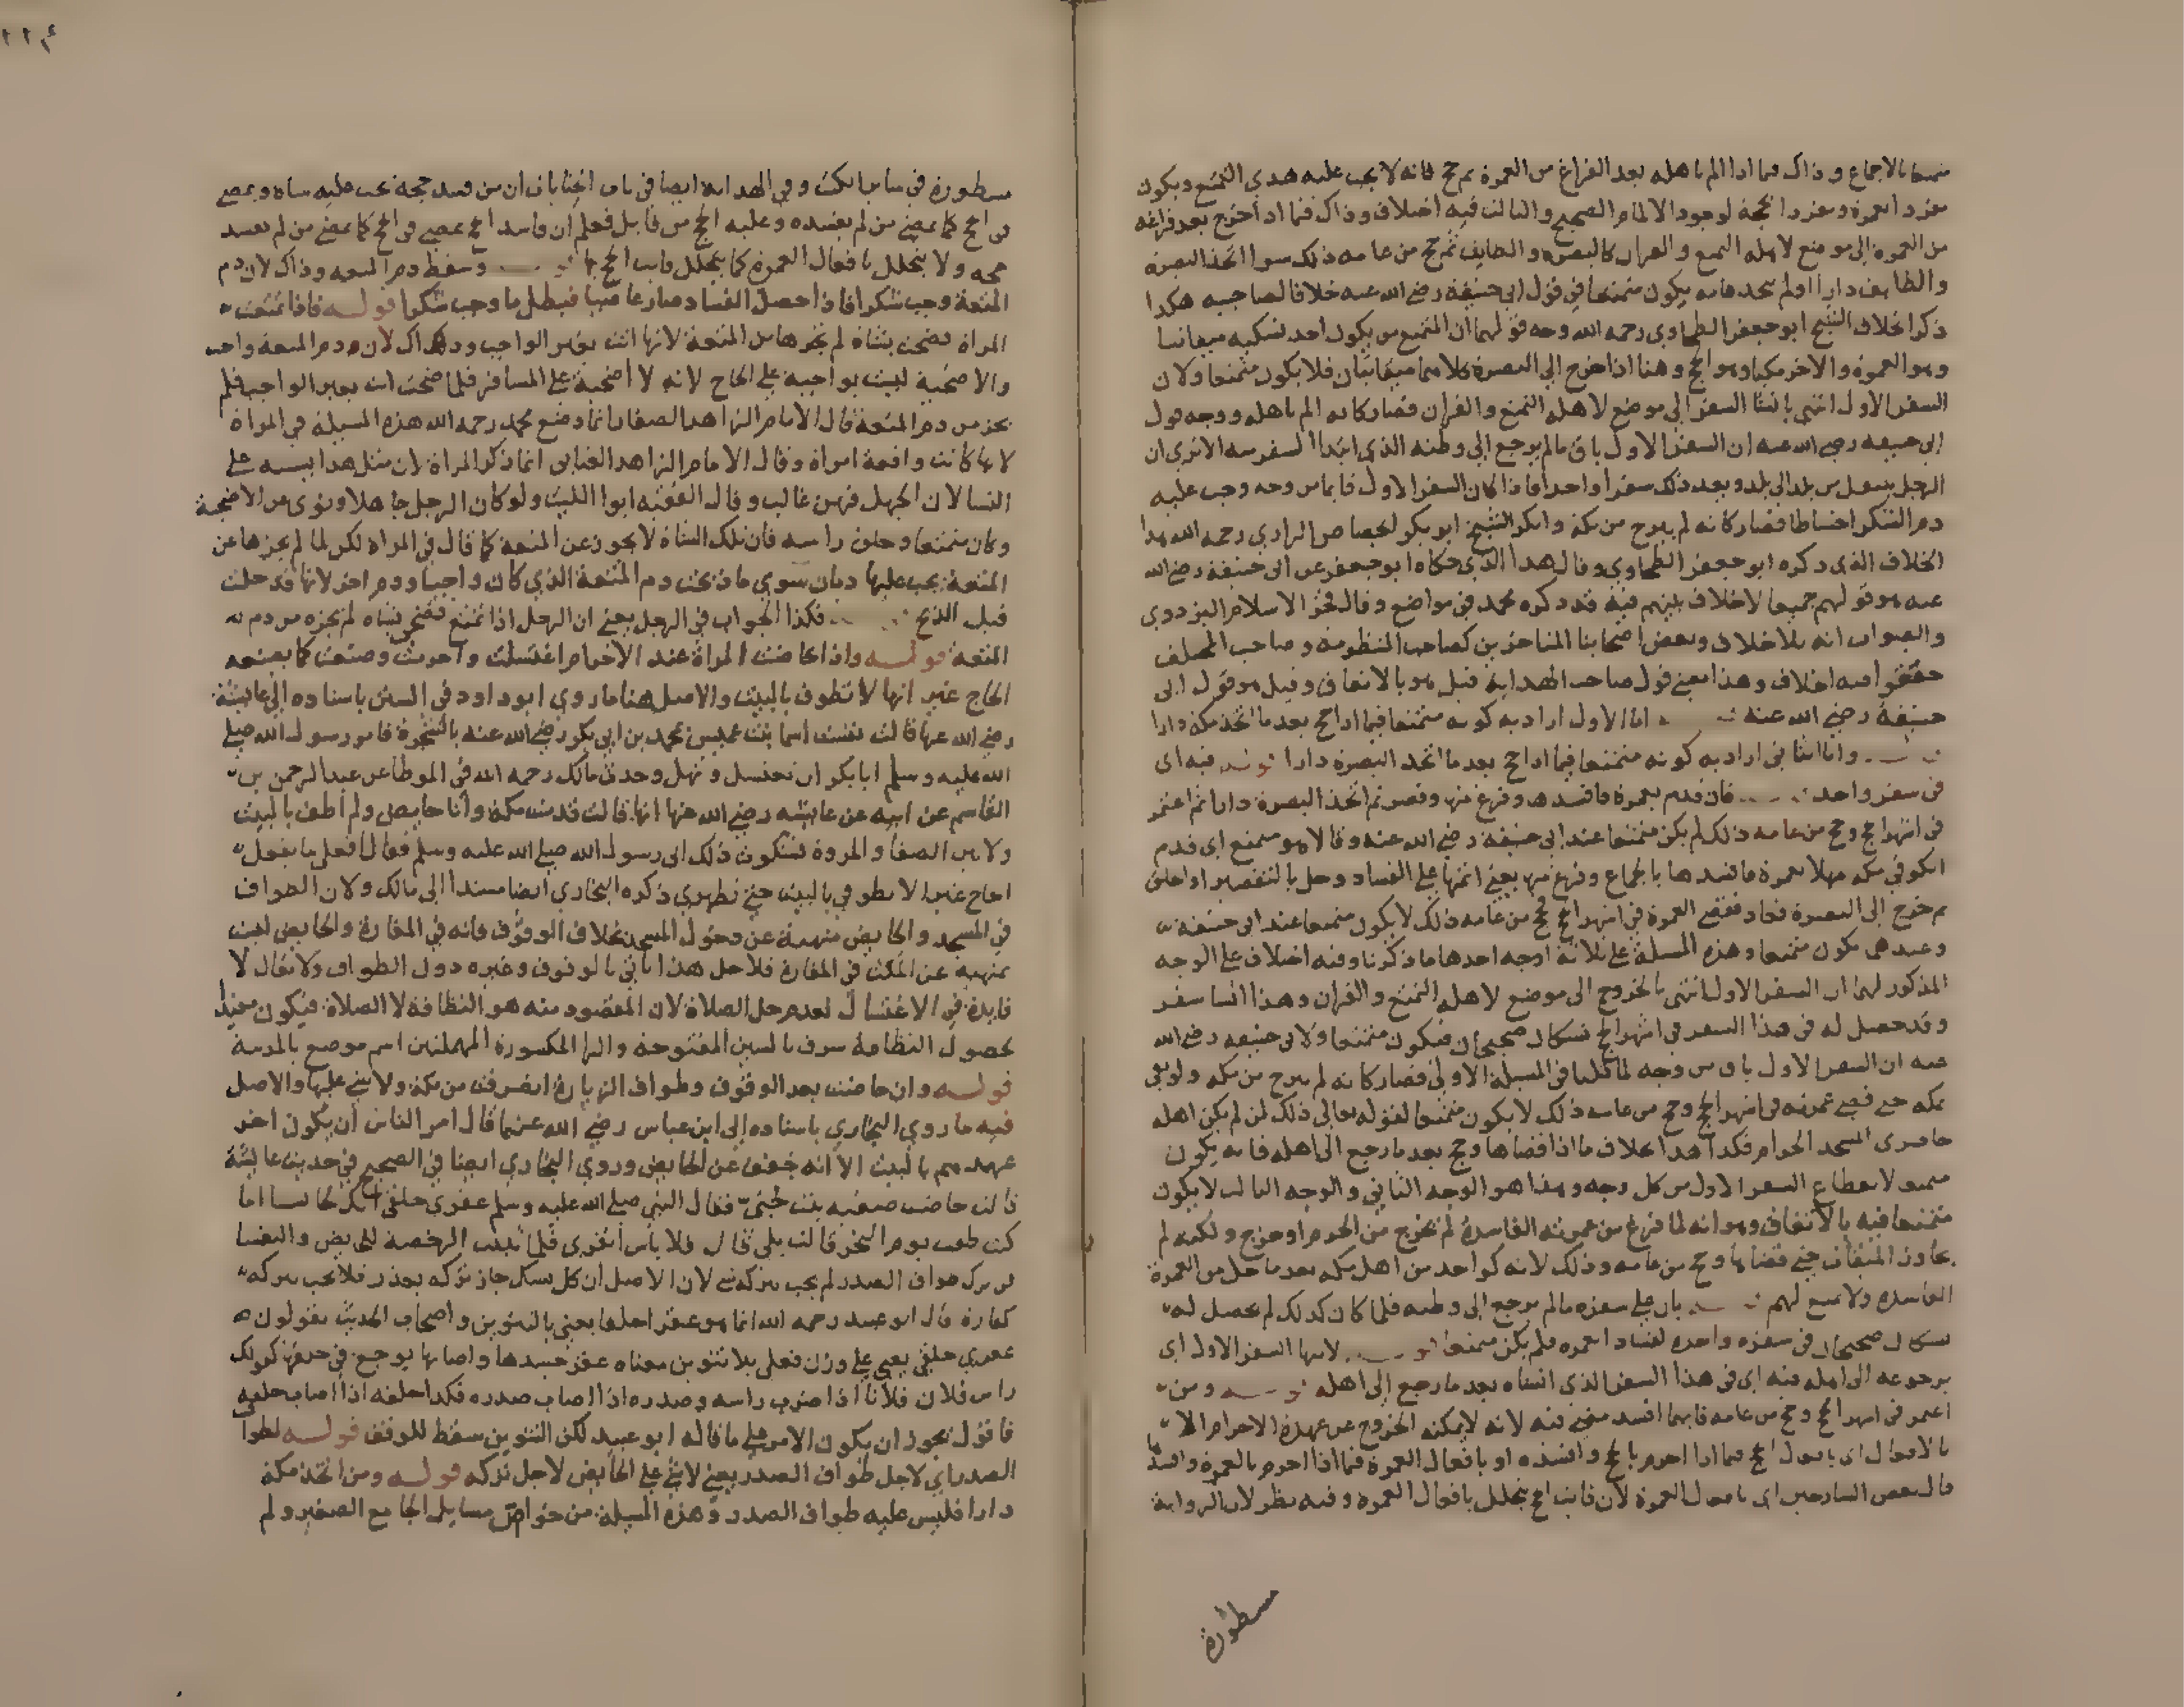 متمتعا بالاجماع وذاك فيما اذا الم باهله بعد الفراغ من العمرة ثم حج فانه لا يجب عليه هدي التمتع ويكون
مفردا بعمرة ومفردا بحجة لوجود الالمام الصحيح والثالث فيه اختلاف وذاك فيما اذا خرج بعد فراغه
من العمرة الى موضع لاهله التمتع والقران كالبصرة والطايف ثم حج من عامه ذلك سوا اتخذ البصرة
والطايف دارا اولم يتخد فانه يكون متمتعا في قول ابي حنيفة رضي الله عنه خلافا لصاحبيه هكذا
ذكر الخلاف الشيخ ابو جعفر الطحاوي رحمه الله وجه قولهما ان المتمتع من يكون احد نسكيه ميقاتيا
وهو العمرة والاخر مكيا وهو الحج وهنا اذا خرج الى البصرة كلاهما ميقاتيان فلا يكون متمتعا ولان
السفر الاول انتهى بانشا السفر الى موضع لاهله التمتع والقران فصار كانه الم باهله ووجه قول
ابي حنيفه رضي الله عنه ان السفر الاول باق مالم يرجع الى وطنه الذي ابتدا السفر منه الا ترى ان
الرجل ينتقل من بلد الى بلد ويعد ذلك سفرا واحدا فاذا كان السفر الاول قايما من وجه وجب عليه
دم الشكر احتياطا فصار كانه لم يبرح من مكة وانكر الشيخ ابو بكر الجصاص الرازي رحمه الله هذا
الخلاف الذي ذكره ابو جعفر الطحاوي وقال هذا الذي حكاه ابو جعفر عن ابي حنيفة رضي الله
عنه هو قولهم جميعا لا خلاف بينهم فيه قد ذكره محمد في مواضع وقال فخر الاسلام البزدوي
والصواب انه بلا خلاف وبعض اصحابنا المتاخرين كصاحب المنظومة وصاحب المختلف
حققوا فيه الخلاف وهذا معنى قول صاحب الهداية قيل هو بالاتفاق وقيل هو قول ابي
حنيفة رضي الله عنه اما الاول اراد به كونه متمتعا فيما اذا حج بعد ما اتخذ مكة دارا
واما الثاني اراد به كونه متمتعا فيما اذا حج بعد ما اتخد البصرة دارا قوله فيه اى
في سفر واحد فان قدم بعمرة فافسدها وفرغ منها وقصر ثم اتخذ البصرة دارا ثم اعتمر
في اشهر الحج وحج من عامه ذلك لم يكن متمتعا عند ابي حنيفة رضي الله عنه وقالا هو متمتع اي قدم
الكوفي مكة مهلا بعمرة فافسدها بالجماع وفرغ منها يعني اتمها على الفساد وحل بالتقصير او الحلق
ثم خرج الى البصرة فعاد فقضى العمرة في اشهر الحج وحج من عامه ذلك لا يكون متمتعا عند ابي حنيفة
وعندهما يكون متمتعا وهذه المسلة على ثلاثة اوجه احدها ما ذكرنا وفيه اختلاف على الوجه
المذكور لهما ان السفر الاول انتهى بالخروج الى موضع لاهله التمتع والقران وهذا انشا سفر
وقد حصل له في هذا السفر في اشهر الحج نسكان صحيحان فيكون متمتعا ولابي حنيفة رضي الله
عنه ان السفر الاول باق من وجه لما قلنا في المسلة الاولى فصار كانه لم يبرح من مكه ولو بقي
بمكه حتى قضى عمرته في اشهر الحج وحج من عامه ذلك لا يكون متمتعا لقوله تعالى ذلك لمن لم يكن اهله
حاضري المسجد الحرام فكذا هذا بخلاف ما اذا قضاها وحج بعد ما رجع الى اهله فانه يكون
متمتعا لانقطاع السفر الاول من كل وجه وهذا هو الوجه الثاني والوجه الثالث لا يكون
متمتعا فيه بالاتفاق وهو انه لما فرغ من عمرته الفاسدة لم يخرج من الحرم او خرج ولكنه لم
يجاوز الميقات حتى قضاها وحج من عامه وذلك لانه كواحد من اهل مكه بعد ما حل من العمرة
الفاسدة ولا تمتع لهم باق على سفره مالم يرجع الى وطنه فلما كان كذلك لم يحصل له
نسكان صحيحان في سفره واحدة لفساد العمرة فلم يكن متمتعا لانتهاء السفر الاول اى
برجوعه الى اهله فيه اى في هذا السفر الذي انشاه بعد ما رجع الى اهله ومن
اعتمر في اشهر الحج وحج من عامه فايهما افسد مضى فيه لانه لا يمكنه الخروج عن عهدة الاحرام الا
بالافعال اى بافعال الحج فيما اذا احرم بالحج وافسده او بافعال العمرة فيما اذا احرم بالعمرة وافسدها
قال بعض الشارحين اى بافعال العمرة لان فايت الحج يتحلل بافعال العمرة وفيه نظر لان الرواية
مسطورة
٢٢٤
مسطورة في ساير الكتب وفي الهداية ايضا في باب الجنايات ان من فسد حجه يجب عليه شاة ويمضي
في الحج كما يمضي من لم يفسده وعليه الحج من قابل فعلم ان فاسد الحج يمضي في الحج كما يمضي من لم يفسد
حجه ولا يتحلل بافعال العمرة كما يتحلل فايت الحج بها وسقط دم المتعه وذاك لان دم
المتعة وجب شكرا فاذا حصل الفساد صار عاصيا فبطل ما وجب شكرا قوله فاذا تمتعت
المراة فضحت بشاة لم يجزها من المتعة لانها اتت بغير الواجب وذاك لان دم المتعة واجب
والاضحية ليست بواجبة على الحاج لانه لا اضحية على المسافر فلما ضحت اتت بغير الواجب فلم
يجز من دم المتعة قال الامام الزاهد الصفار انما وضع محمد رحمه الله هذه المسيلة في المراة
لانها كانت واقعة امراة وقال الامام الزاهد العتابي انما ذكر المراة لان مثل هذا يشتبه على
النسا لان الجهل فيهن غالب وقال الفقيه ابوا الليث ولو كان الرجل جاهلا ونوى عن الاضحية
وكان متمتعا وحلق راسه فان تلك الشاة لا يجوز عن المتعة كما قال في المراة لكن لما لم يجزها عن
المتعة يجب عليها دمان سوى ما ذبحت دم المتعة الذي كان واجبا ودم اخر لانها قد حلت
قبل الذبح فكذا الجواب في الرجل يعني ان الرجل اذا تمتع فضحى بشاه لم يجزه من دم
المتعة قوله واذا حاضت المراة عند الاحرام اغتسلت واحرمت وصنعت كما يصنعه
الحاج غير انها لا تطوف بالبيت والاصل هنا ما روى ابو داود في السنن باسناده الى عايشة
رضي الله عنها قالت نفست اسما بنت عميس بمحمد بن ابي بكر رضي الله عنه بالشجرة فامر رسول الله صلى
الله عليه وسلم ابا بكر ان تغتسل وتهل وحدث مالك رحمه الله في الموطا عن عبد الرحمن بن
القاسم عن ابيه عن عايشه رضي الله عنها انها قالت قدمت مكة وانا حايض ولم اطف بالبيت
ولا بين الصفا والمروة فشكوت ذلك الى رسول الله صلى الله عليه وسلم فقال افعلي ما يفعل
الحاج غير ان لا تطوفي بالبيت حتى تطهري ذكره البخاري ايضا مسندا الى مالك ولان الطواف
في المسجد والحايض منهية عن دخول المسجد بخلاف الوقوف فانه في المفازة والحايض ليست
بمنهية عن المكث في المفازة فلاجل هذا تاتي بالوقوف وغيره دون الطواف ولا يقال لا
فايدة في الاغتسال لعدم حل الصلاة لان المقصود منه هو النظافة لا الصلاة فيكون مفيدا
لحصول النظافة سرف بالسين المفتوحة والرا المكسورة المهملتين اسم موضع بالمدينة
قوله وان حاضت بعد الوقوف وطواف الزيارة انصرفت من مكة ولا شي عليها والاصل
فيه ما روى البخاري باسناده الى ابن عباس رضي الله عنهما قال امر الناس ان يكون اخر
عهدهم بالبيت الا انه خفف عن الحايض وروى البخاري ايضا في الصحيح في حديث عايشة
قالت حاضت صفيه بنت حيي فقال النبي صلى الله عليه وسلم عقرى حلقى انك لحابستنا اما
كنت طفت يوم النحر قالت بلى قال فلا باس انفري فلما ثبتت الرخصة للحايض والنفسا
في ترك طواف الصدر لم يجب بتركه شي لان الاصل ان كل نسك جاز تركه بعذر فلا يجب بتركه
كفارة قال ابو عبيد رحمه الله انما هو عقرا حلقا يعني بالتنوين واصحاب الحديث يقولون
عقرى حلقى يعني على وزن فعلى بلا تنوين معناه عقر جسدها واصابها بوجع في حلقها كقولك
راس فلان فلانا اذا ضرب راسه وصدره اذا اصاب صدره فكذا حلقه اذا اصاب حلقه
فاقول يجوز ان يكون الامر على ما قاله ابو عبيد لكن التنوين سقط للوقف قوله لطواف
الصدر اي لاجل طواف الصدر يعني لا شي على الحايض لاجل تركه قوله ومن اتخذ مكة
دارا فليس عليه طواف الصدر وهذه المسيلة من خواص مسايل الجامع الصغير ولم